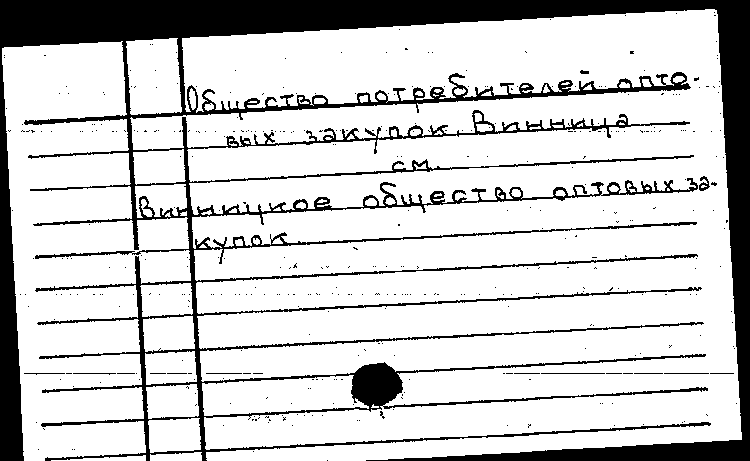 Общество потребителей опто-
вых закупок. Винница
см.
Винницкое общество оптовых за-
купок.